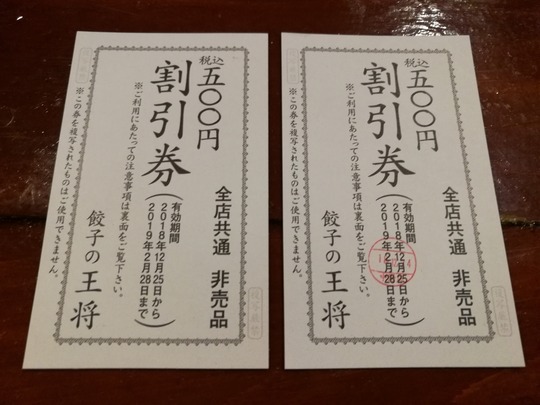 税込
五〇〇円
割引券
※ご利用にあたっての注意事項は裏面をご覧下さい。
※この券を複写されたものはご使用できません。
全店共通 非売品
有効期間
2018年12月25日から
2019年2月28日まで
餃子の王将
税込
五〇〇円
割引券
※ご利用にあたっての注意事項は裏面をご覧下さい。
※この券を複写されたものはご使用できません。
全店共通 非売品
有効期間
2018年12月25日から
2019年2月28日まで
餃子の王将